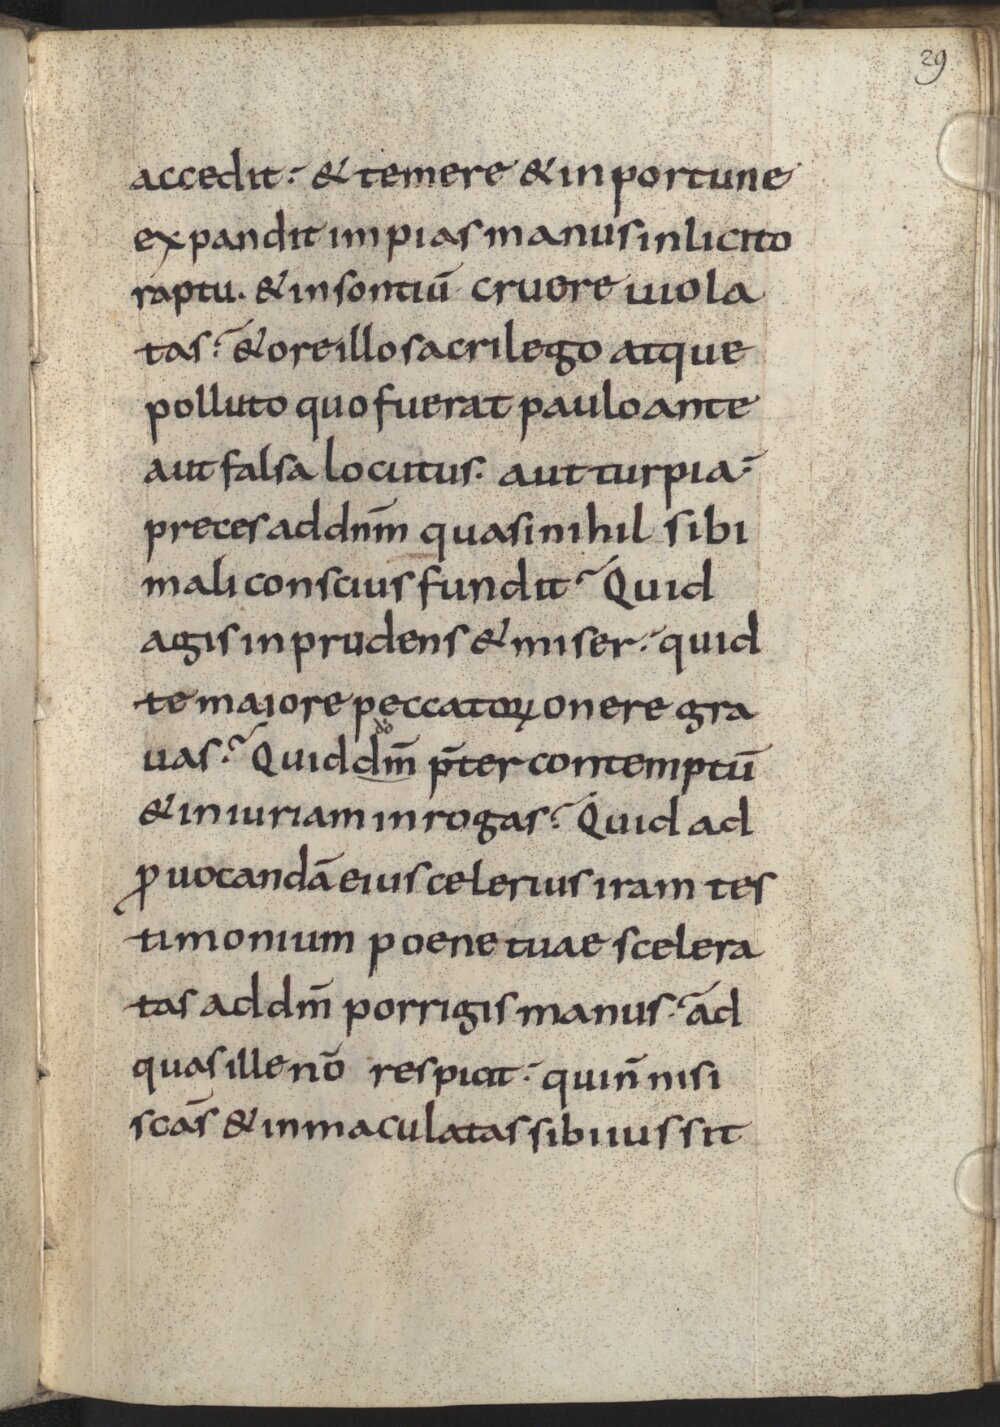 29
accedit· & temere & inportune
expandit impias manus inlicito
raptu. & insontiū cruore uiola
tas? & ore illo sacrilego atque
polluto quo fuerat paulo ante
aut falsa locutus. aut turpia·
preces ad dnm̄ quasi nihil sibi
mali conscius fundit? Quid
agis inprudens & miser· quid
te maiore peccatoꝝ onere gra
uas? Quid dm̄ p̄ter contemptū
do
& iniuriam inrogas? Quid ad
ꝓuocandā eius celerius iram tes
timonium poene tuae scelera
tas ad dm̄ porrigis manus? ad
quas ille nō respicit· quin̄ nisi
scās & inmaculatas sibi iussit